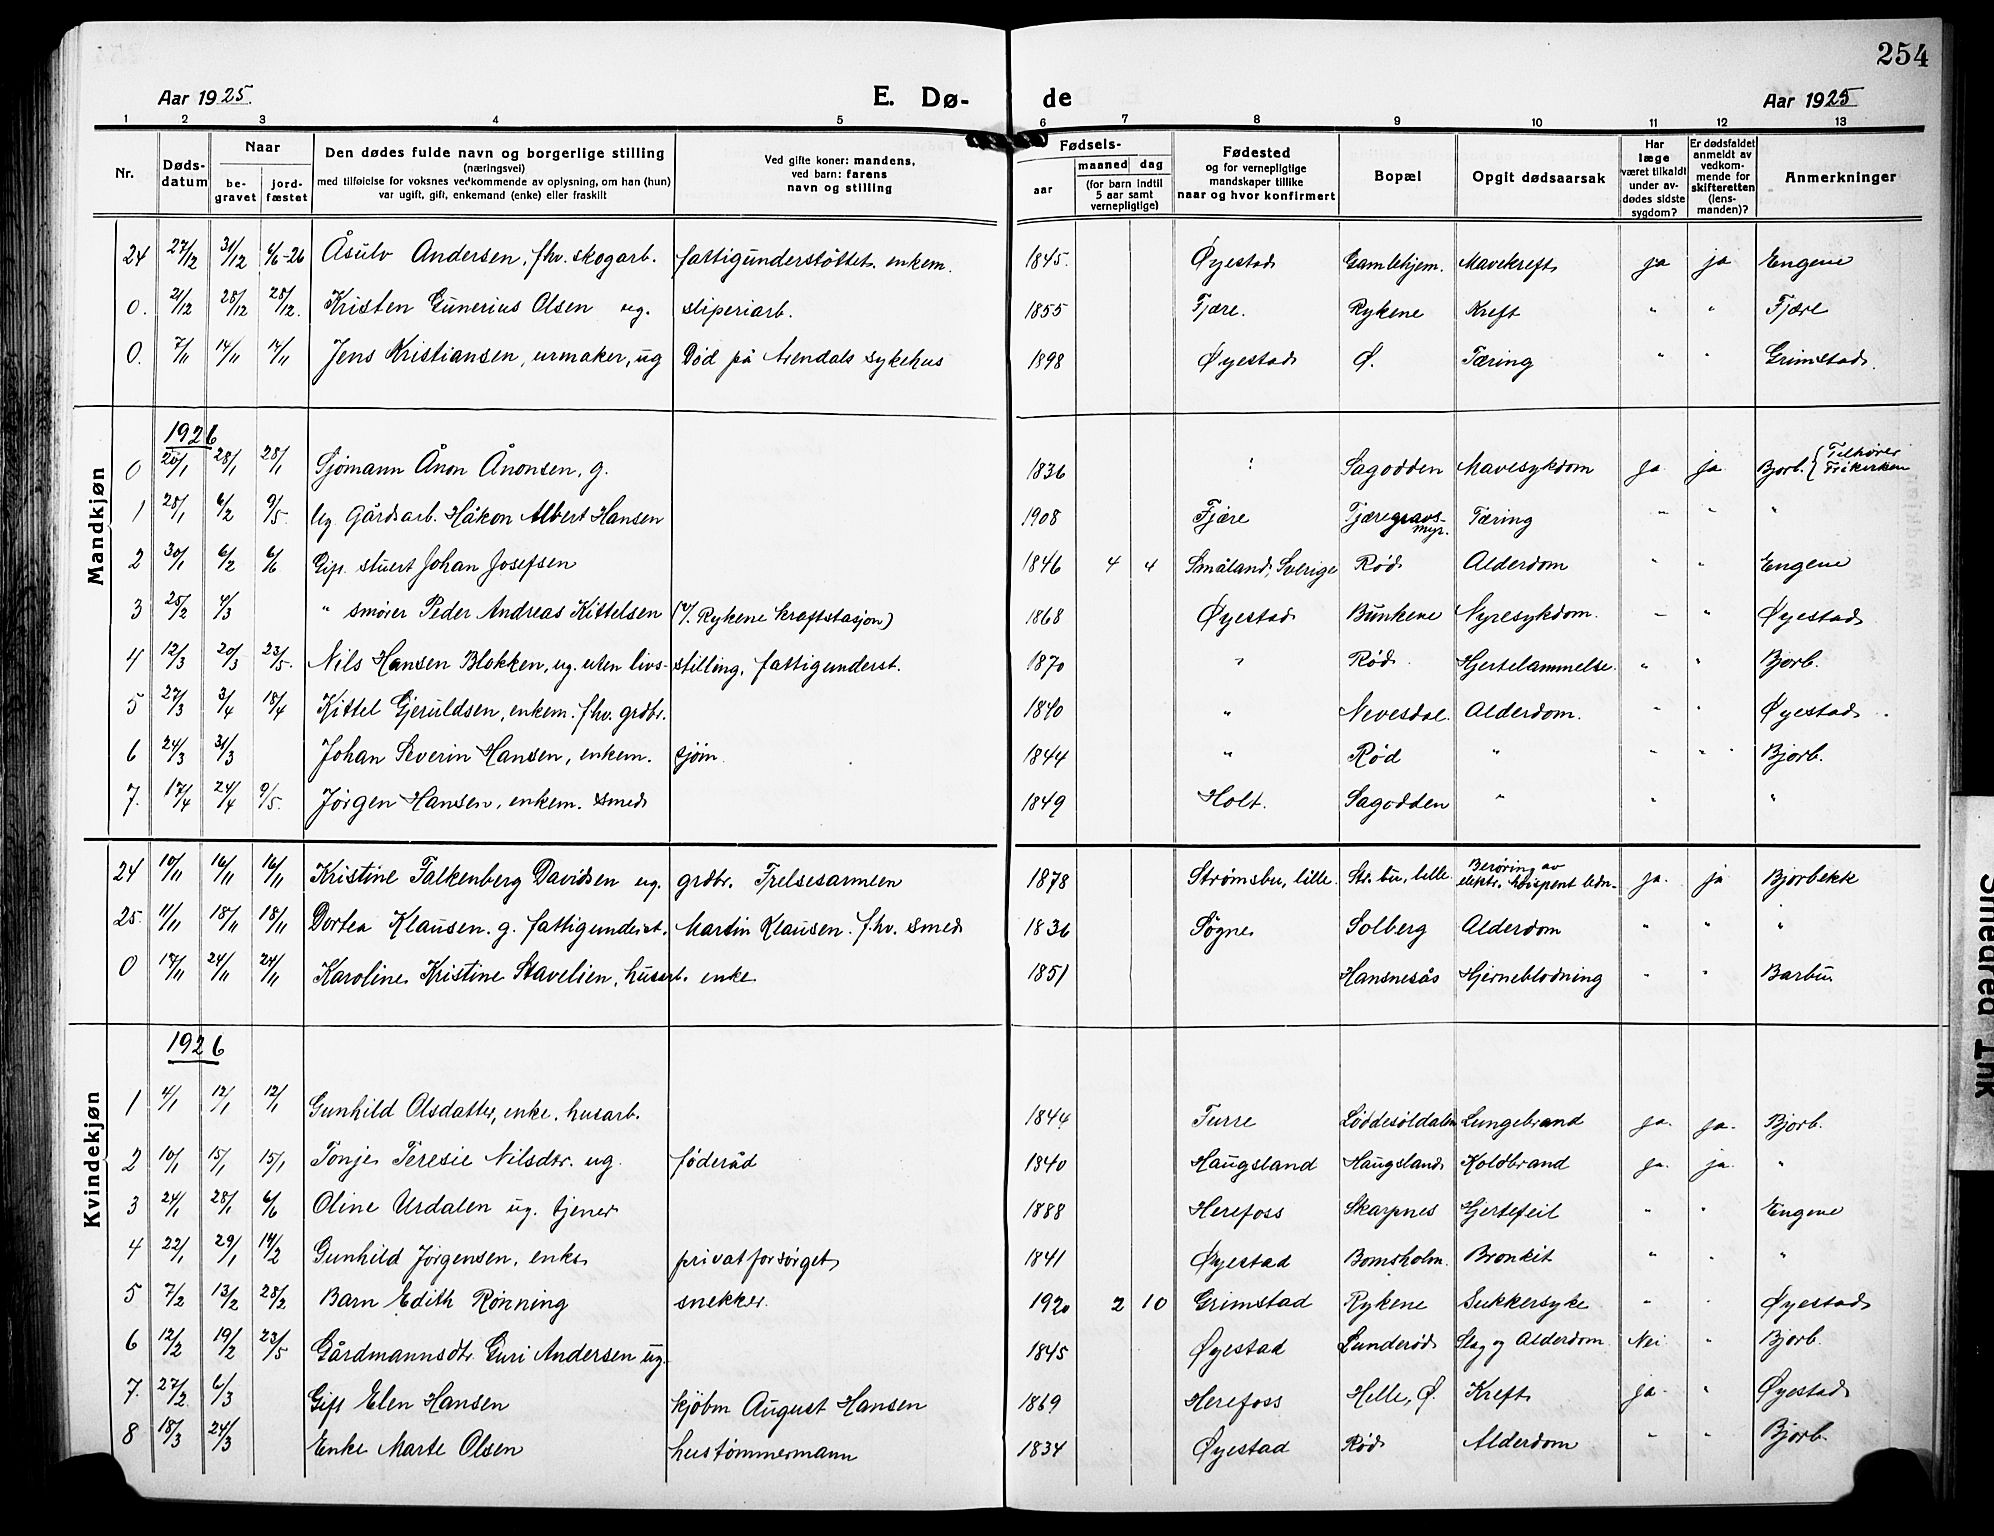 254
Aar 1925. E. Dø- de Aar 1925
1 2 3 4 5 6 7 8 9 10 11 12 13
Nr. Døds-datum Naar be-gravet jord-fæstet Den dødes fulde navn og borgerlige stilling (næringsvei) med tilføielse for voksnes vedkommende av oplysning, om han (hun) var ugift, gift, enkemand (enke) eller fraskilt Ved gifte koner: mandens, ved barn: farens navn og stilling Fødsels- aar maaned dag (for barn indtil 5 aar samt vernepligtige) Fødested og for vernepligtige mandskaper tillike naar og hvor konfirmert Bopæl Opgit dødsaarsak Har læge været tilkaldt under av-dødes sidste sygdom? Er dødsfaldet anmeldt av vedkom-mende for skifteretten (lens-manden)? Anmerkninger
24 27/12 31/12 6/6-26 Åsulv Andersen, fhv. skogarb. fattigunderstøttet. enkem. 1845. Øyestad Gamlehjem. Mavekreft ja ja Engene
0. 21/12 28/12 28/12. Kristen Gunerius Olsen ug. sliperiarb. 1855 Fjære. Rykene Kreft " " Fjære
0. 7/11 14/11 14/11 Jens Kristiansen, urmaker, ug Død på Arendals sykehus 1898 Øyestad Ø. Tæring " " Grimstad.
Mandkjøn
1926
0 20/1 28/1 28/1 Sjømann Ånon Ånonsen, g. 1836 Sagodden Mavesykdom ja ja Bjorb. { Tilhører Frikirken
1 28/1 6/2 9/5. Ug. Gårdsarb. Håkon Albert Hansen 1908 Fjære Tjæregravs-myr. Tæring " " "
2 30/1 6/2 6/6 Gift. stuert Johan Josefsen 1846 4 4 Småland, Sverige Rød Alderdom " " Engene
3 25/2 4/3 " smører Peder Andreas Kittelsen (v/ Rykene kraftstasjon) 1868 Øyestad Bunkene Nyresykdom. " " Øyestad
4 12/3 20/3 23/5. Nils Hansen Blokken, ug. uten livs-stilling, fattigunderst. 1870 " Rød. Hjertelammelse. " " Bjorb.
5 27/3 3/4 18/4 Kittel Gjeruldsen, enkem. fhv. grdbr. 1840 " Nevesdal. Alderdom. " " Øyestad.
6 24/3 31/3 Johan Severin Hansen, enkem. sjøm. 1844 " Rød " " " Bjorb.
7. 17/4 24/4 9/5. Jørgen Hansen, enkem. smed 1849 Holt. Sagodden " " "
24 10/11 16/11 16/11 Kristine Falkenberg Davidsen ug. grdbr. Frelsesarmeen 1878 Strømsbu, lille. Str. bu, lille. Berøring av elektr. høispent ledn- ja. ja Bjorbekk
25. 11/11 18/11 18/11 Dortea Klausen. g. fattigunderst. Martin Klausen. fhv. smed 1836 Søgne Solberg Alderdom " " "
0 17/11 24/11 24/11 Karoline Kristine Stavelien, husarb. enke 1851 Hansnesås Hjerneblødning " " Barbu.
Kvindekjøn
1926
1 4/1 12/1 12/1 Gunhild Olsdatter, enke, husarb. 1844 Turre Løddesøldalen Lungebrand ja. ja. Bjorb.
2 10/1 15/1 15/1 Tonje Teresie Nilsdtr. ug. føderåd 1840 Haugsland Haugsland Koldbrand ja. ja. "
3 24/1 28/1 6/6 Oline Urdalen ug. tjener 1888 Herefoss Skarpnes Hjertefeil " " Engene
4 22/1 29/1 14/2 Gunhild Jørgensen, enke privat forsørget 1841 Øyestad Bomsholm. Bronkit " " "
5 7/2 13/2 28/2 Barn Edith Rønning snekker. 1920 2 10 Grimstad Rykene Sukkersyke " " Øyestad
6 12/2 19/2 23/5 Gårdmannsdtr. Guri Andersen ug. 1845 Øyestad Lunderød Slag og Alderdom. Nei " Bjorb.
7. 27/2 6/3 Gift Elen Hansen kjøbm August Hansen 1869 Herefoss Helle, Ø. Kreft ja. " Øyestad
8 18/3 24/3 Enke Marte Olsen hustømmermann 1834 Øyestad Rød Alderdom " " Bjorb.
Smeared Ink